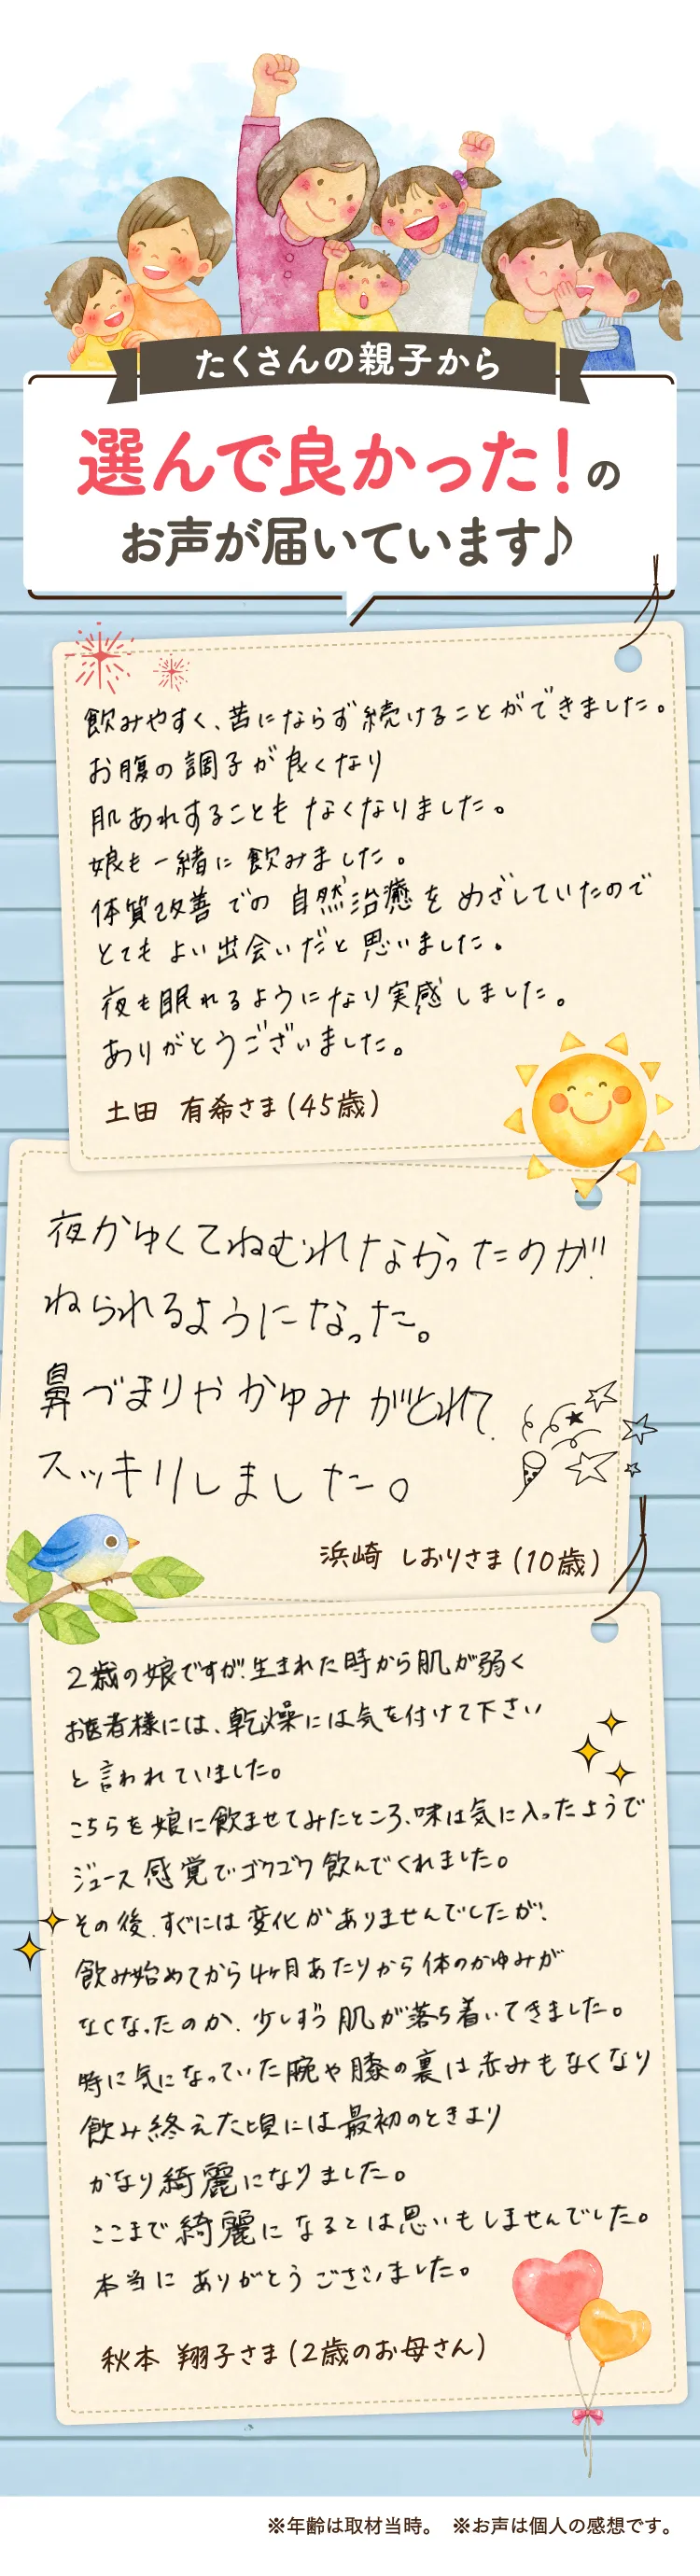 たくさんの親子から
選んで良かった!の
お声が届いています♪
飲みやすく、苦にならず続けることができました。
お腹の調子が良くなり
肌あれすることもなくなりました。
娘も一緒に飲みました。
体質改善での自然治癒をめざしていたので
とてもよい出会いだと思いました。
夜も眠れるようになり実感しました。
ありがとうございました。
土田 有希さま(45歳)
夜かゆくてねむれなかったのが
ねられるようになった。
鼻づまりやかゆみがとれて
スッキリしました。
浜崎 しおりさま(10歳)
2歳の娘ですが、生まれた時から肌が弱く
お医者様には、乾燥には気を付けて下さい
と言われていました。
こちらを娘に飲ませてみたところ、味は気に入ったようで
ジュース感覚でゴクゴク飲んでくれました。
その後、すぐには変化がありませんでしたが、
飲み始めてから4ヶ月あたりから体のかゆみが
なくなったのか、少しずつ肌が落ち着いてきました。
特に気になっていた腕や膝の裏は赤みもなくなり
飲み終えた頃には最初のときより
かなり綺麗になりました。
ここまで綺麗になるとは思いもしませんでした。
本当にありがとうございました。
秋本 翔子さま(2歳のお母さん)
※年齢は取材当時。 ※お声は個人の感想です。